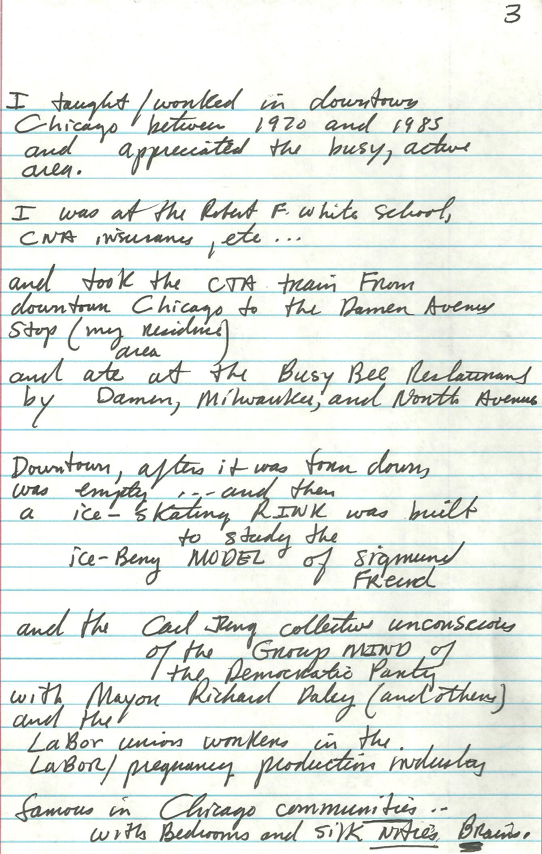 3
I taught/worked in downtown
Chicago between 1970 and 1985
and appreciated the busy, active
area.
I was at the Robert F. White School,
CNA insurance, etc...
and took the CTA train From
downtown Chicago to the Damen Avenue
Stop (my residing
area)
and ate at the Busy Bee Restaurant
by Damen, Milwaukee, and North Avenue
Downtown, after it was torn down,
was empty ... and then
a ice-skating RINK was built
to study the
ice-Berg MODEL of Sigmund
Freud
and the Carl Jung collective unconscious
of the Group MIND of
the Democratic Party
with Mayor Richard Daley (and others)
and the
LaBor union workers in the
LaBOR/pregnancy production industry
famous in Chicago communities..
with Bedrooms and Silk Brains.